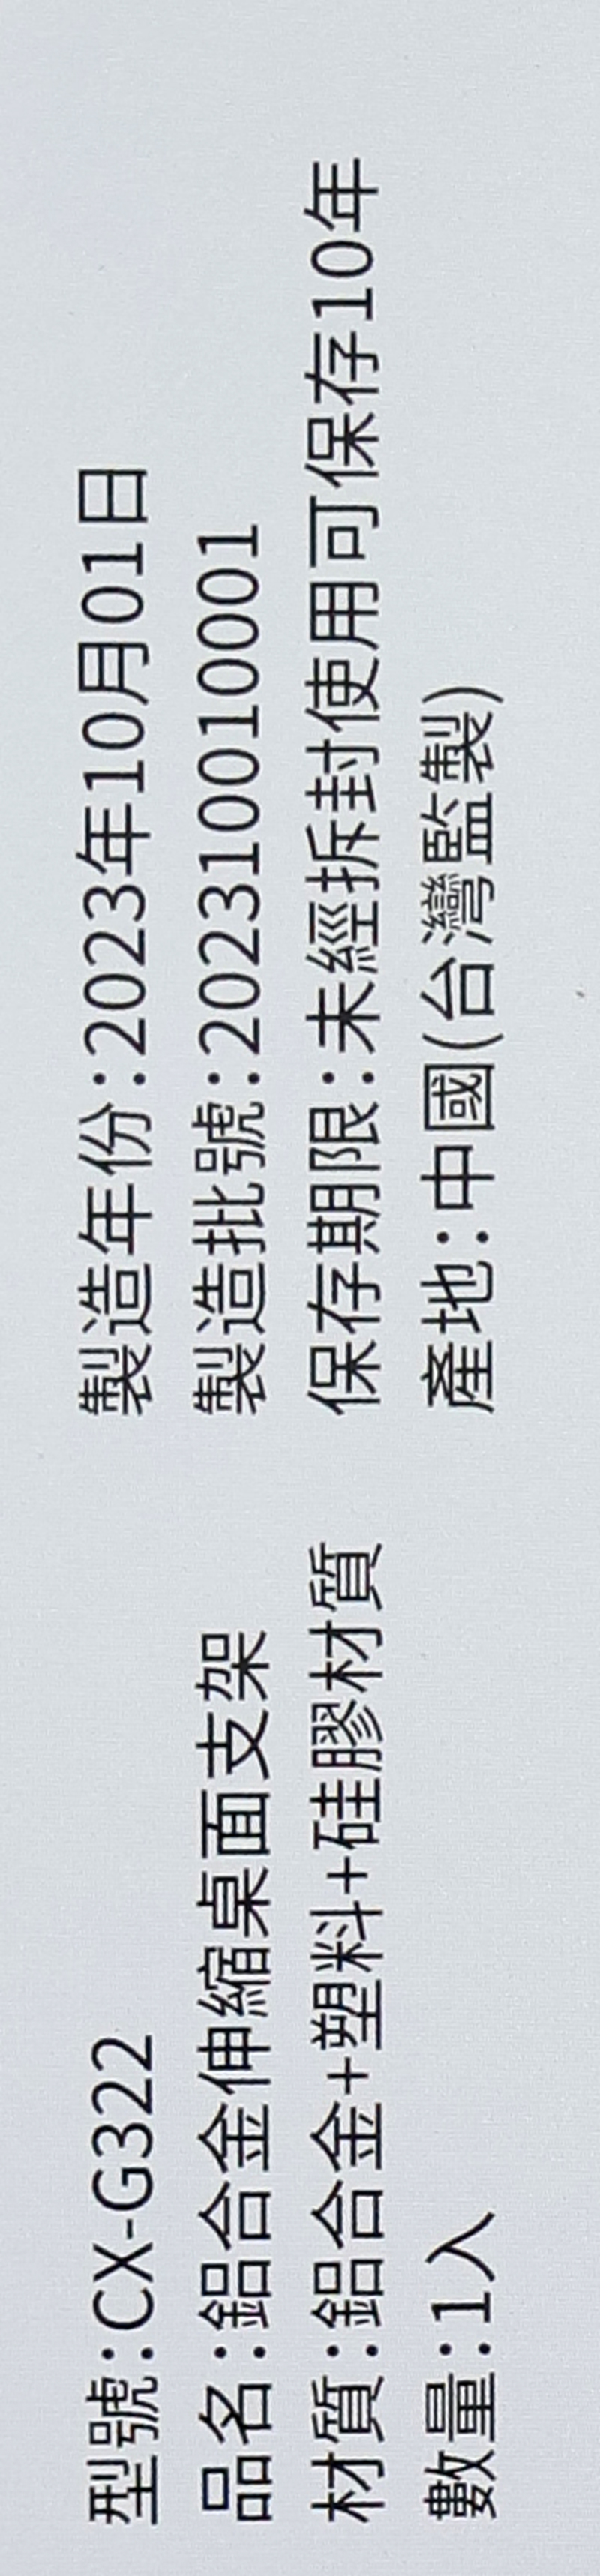 型號:CX-G322
品名:鋁合金伸縮桌面支架
材質:鋁合金+塑料+硅膠材質
數量:1入
製造年份:2023年10月01日
製造批號:202310010001
保存期限:未經拆封使用可保存10年
產地:中國(台灣監製)